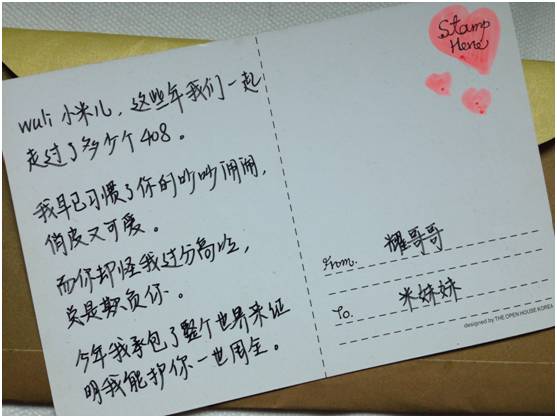 wuli 小米儿，这些年我们一起
走过了多少个408。
我早已习惯了你的吵吵闹闹，
俏皮又可爱。
而你却怪我过分高冷，
总是欺负你。
今年我承包了整个世界来证
明我能护你一世周全。
Stamp
Here
From: 耀哥哥
To: 米妹妹
designed by THE OPEN HOUSE KOREA